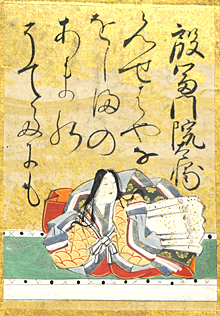 殷富門院大輔
みせはやな
をしまの
あまの
そてたにも